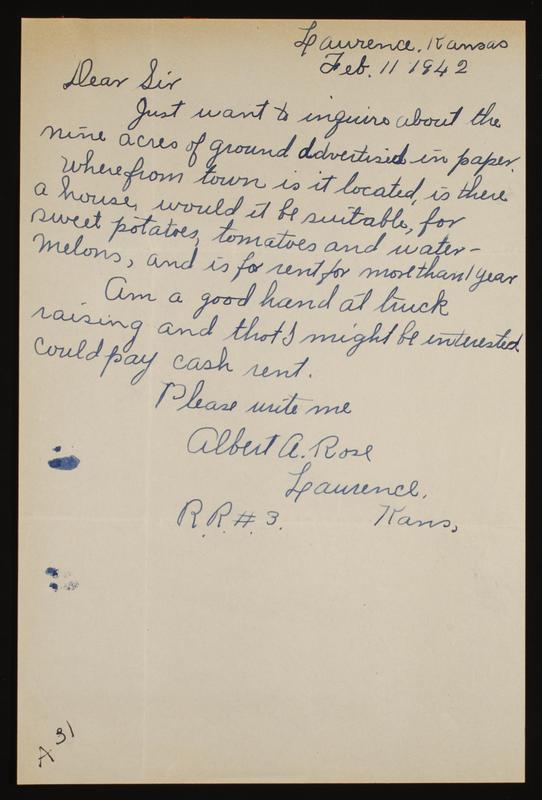 Lawrence, Kansas
Feb. 11 1942
Dear Sir
Just want to inquire about the
nine acres of ground advertised in paper.
Where from town is it located, is there
a house, would it be suitable, for
sweet potatoes, tomatoes and water-
melons, and is for rent for more than 1 year
Am a good hand at truck
raising and thot I might be interested
could pay cash rent.
Please write me
Albert A. Rose
Lawrence,
R.R. # 3. Kans,
A 31